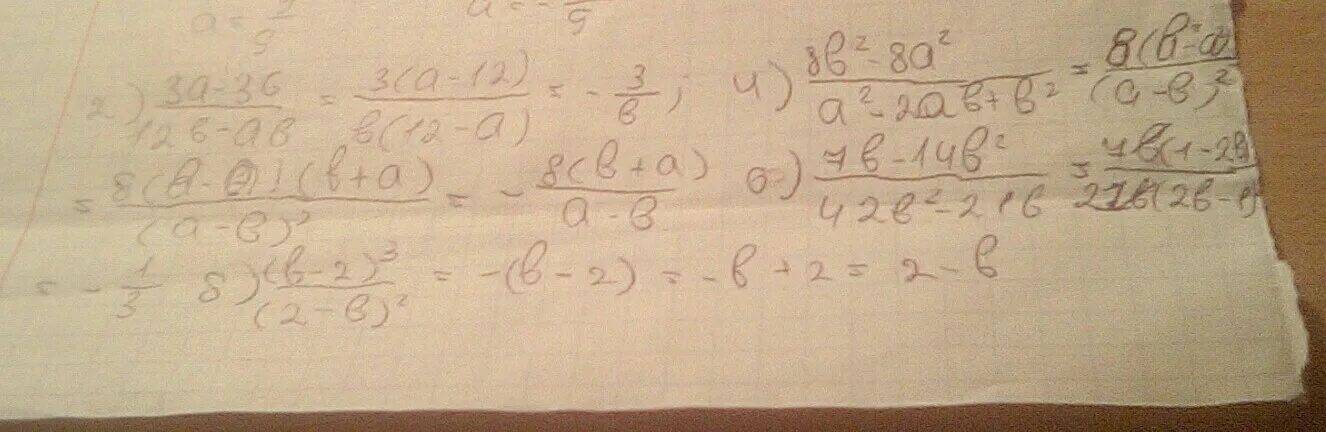 a = 9 a = - 9
2) 3a-36 / 12в-ав = 3(a-12) / в(12-a) = - 3/в ; 4) 8в²-8a² / a²-2aв+в² = 8(в²-a² / (a-в)²
= 8(в-a)(в+a) / (a-в)² = - 8(в+a) / a-в 6) 7в-14в² / 42в²-21в = 7в(1-2в) / 21в(2в-1)
= - 1/3 8) (в-2)³ / (2-в)² = -(в-2) = -в+2 = 2-в